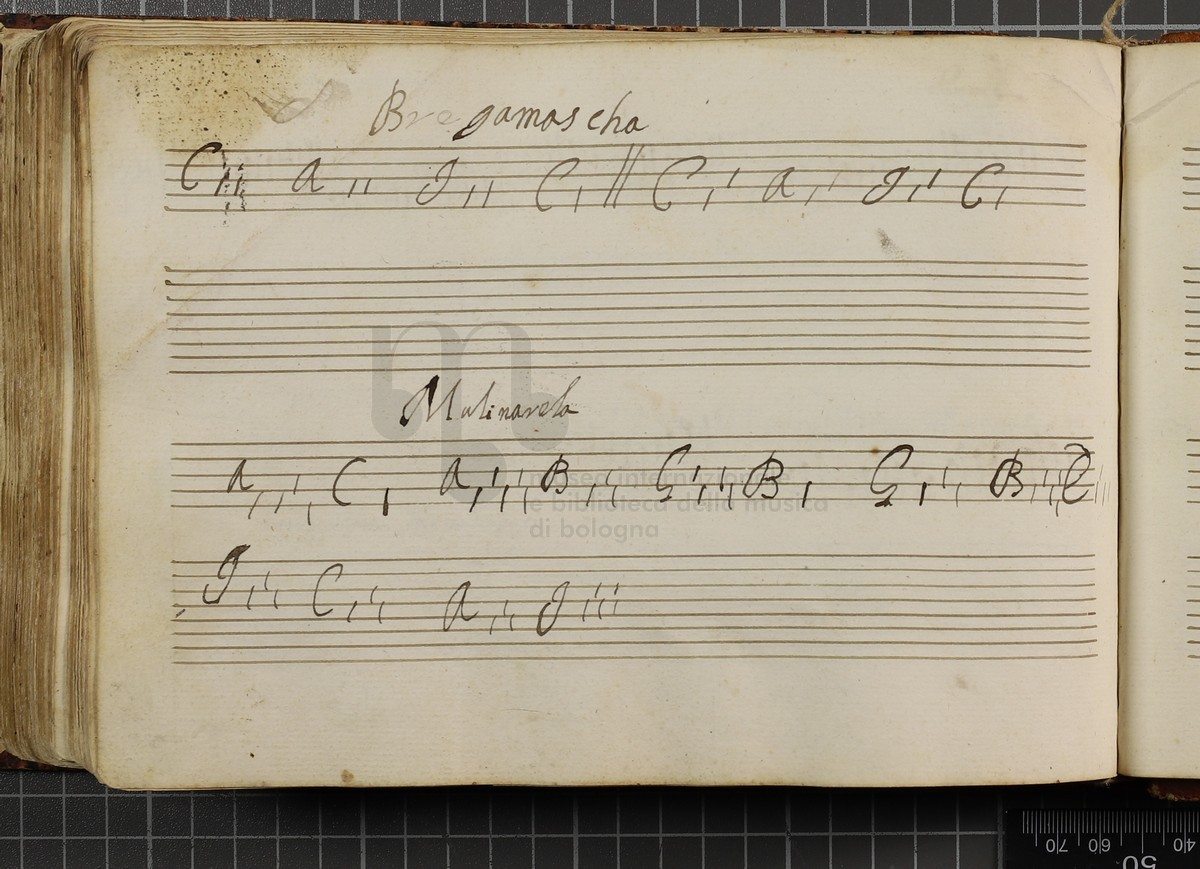 Bregamascha
C A I C C A I C
Mulinarela
A C A B G B G B C
I C A I
museo internazionale
e biblioteca della musica
di bologna
70 60 50 40